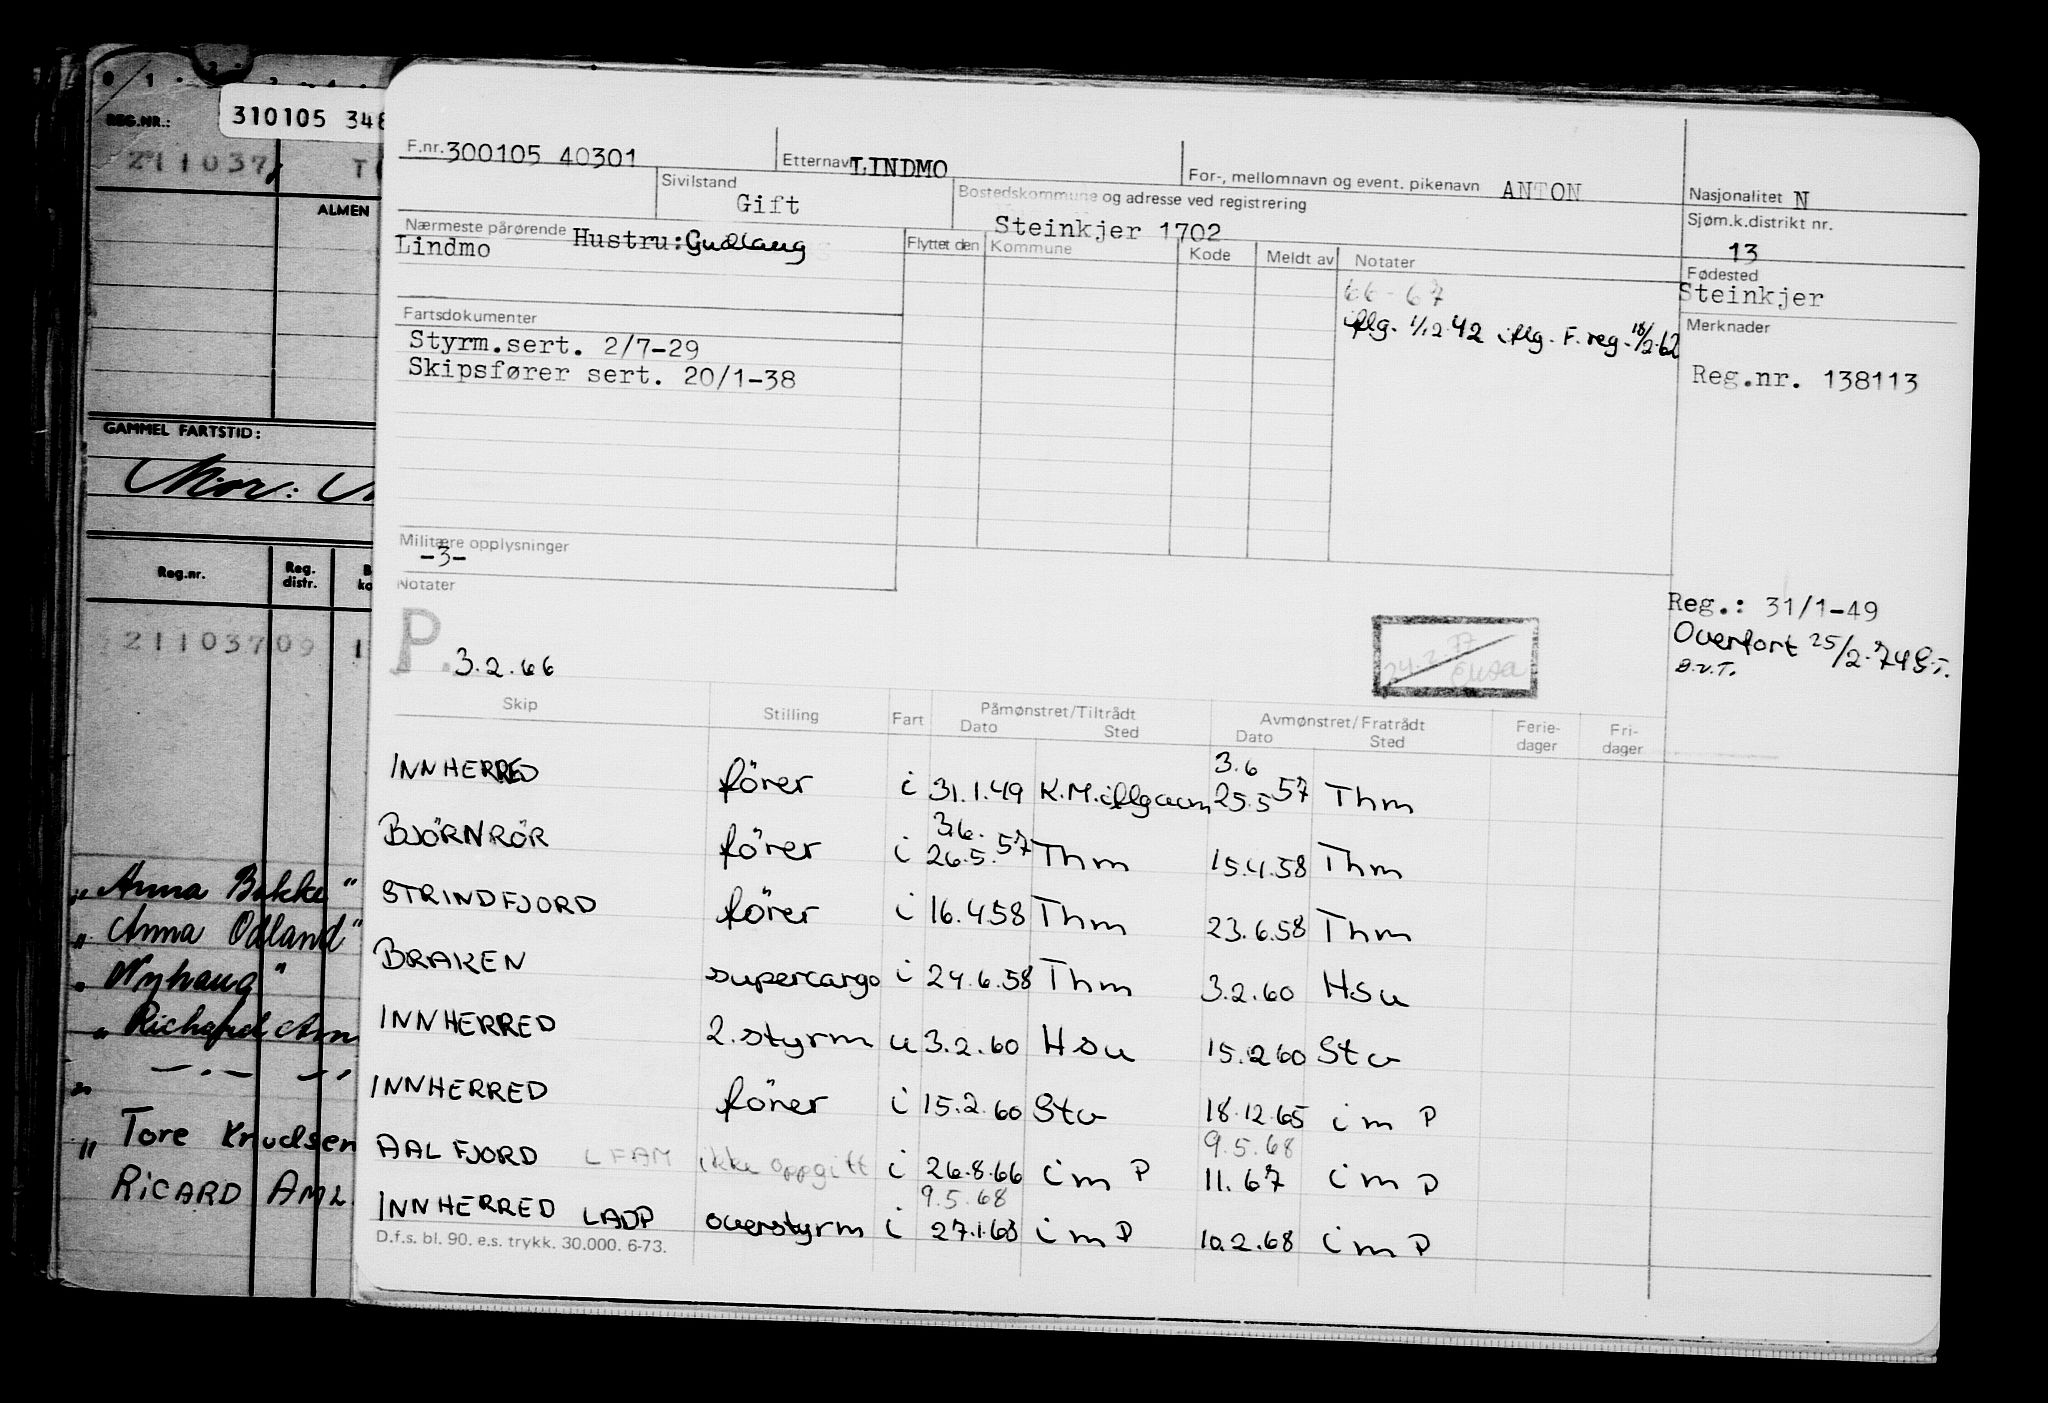 REG.NR.:
310105 348
211037
ALMEN
GAMMEL FARTSTID:
Mor:
Reg.nr. Reg. distr.
21103709 1
„Anna Bakke"
„Anna Odland"
„Nyhaug"
„Richard Am
„ —.— —"
„Tore Knudsen
RICARD AML
F.nr. 300105 40301 Etternavn LINDMO For-, mellomnavn og event. pikenavn ANTON Nasjonalitet N
Sivilstand Gift Bostedskommune og adresse ved registrering Steinkjer 1702 Sjøm.k.distrikt nr. 13
Nærmeste pårørende Hustru: Gudlaug
Lindmo
Flyttet den Kommune Kode Meldt av Notater
66-67
iflg. 1/12.42 iflg. F.reg. 18/2.62
Fødested
Steinkjer
Merknader
Reg.nr. 138113
Fartsdokumenter
Styrm.sert. 2/7-29
Skipsfører sert. 20/1-38
Militære opplysninger
-3-
Notater
P. 3.2.66
24.2.77
Reg.: 31/1-49
Overfort 25/2.74 G.T.
D.V.T.
Skip Stilling Fart Påmønstret/Tiltrådt Avmønstret/Fratrådt Ferie-dager Fri-dager
Dato Sted Dato Sted
INNHERRED förer i 31.1.49 K.M. iflg aum 3.6 25.5 57 Thm
BJÖRNRÖR förer i 3.6. 26.5. 57 Thm 15.4.58 Thm
STRINDFJORD förer i 16.4.58 Thm 23.6.58 Thm
BRAKEN supercargo i 24.6.58 Thm 3.2.60 Hsu
INNHERRED 2.styrm u 3.2.60 Hsu 15.2.60 Stv
INNHERRED förer i 15.2.60 Stv 18.12.65 i m P
AALFJORD LFAM ikke oppgitt i 26.8.66 i m P 9.5.68 11.67 i m P
INNHERRED LADP overstyrm i 9.5.68 27.1.68 i m P 10.2.68 i m P
D.f.s. bl. 90. e.s. trykk. 30.000. 6-73.